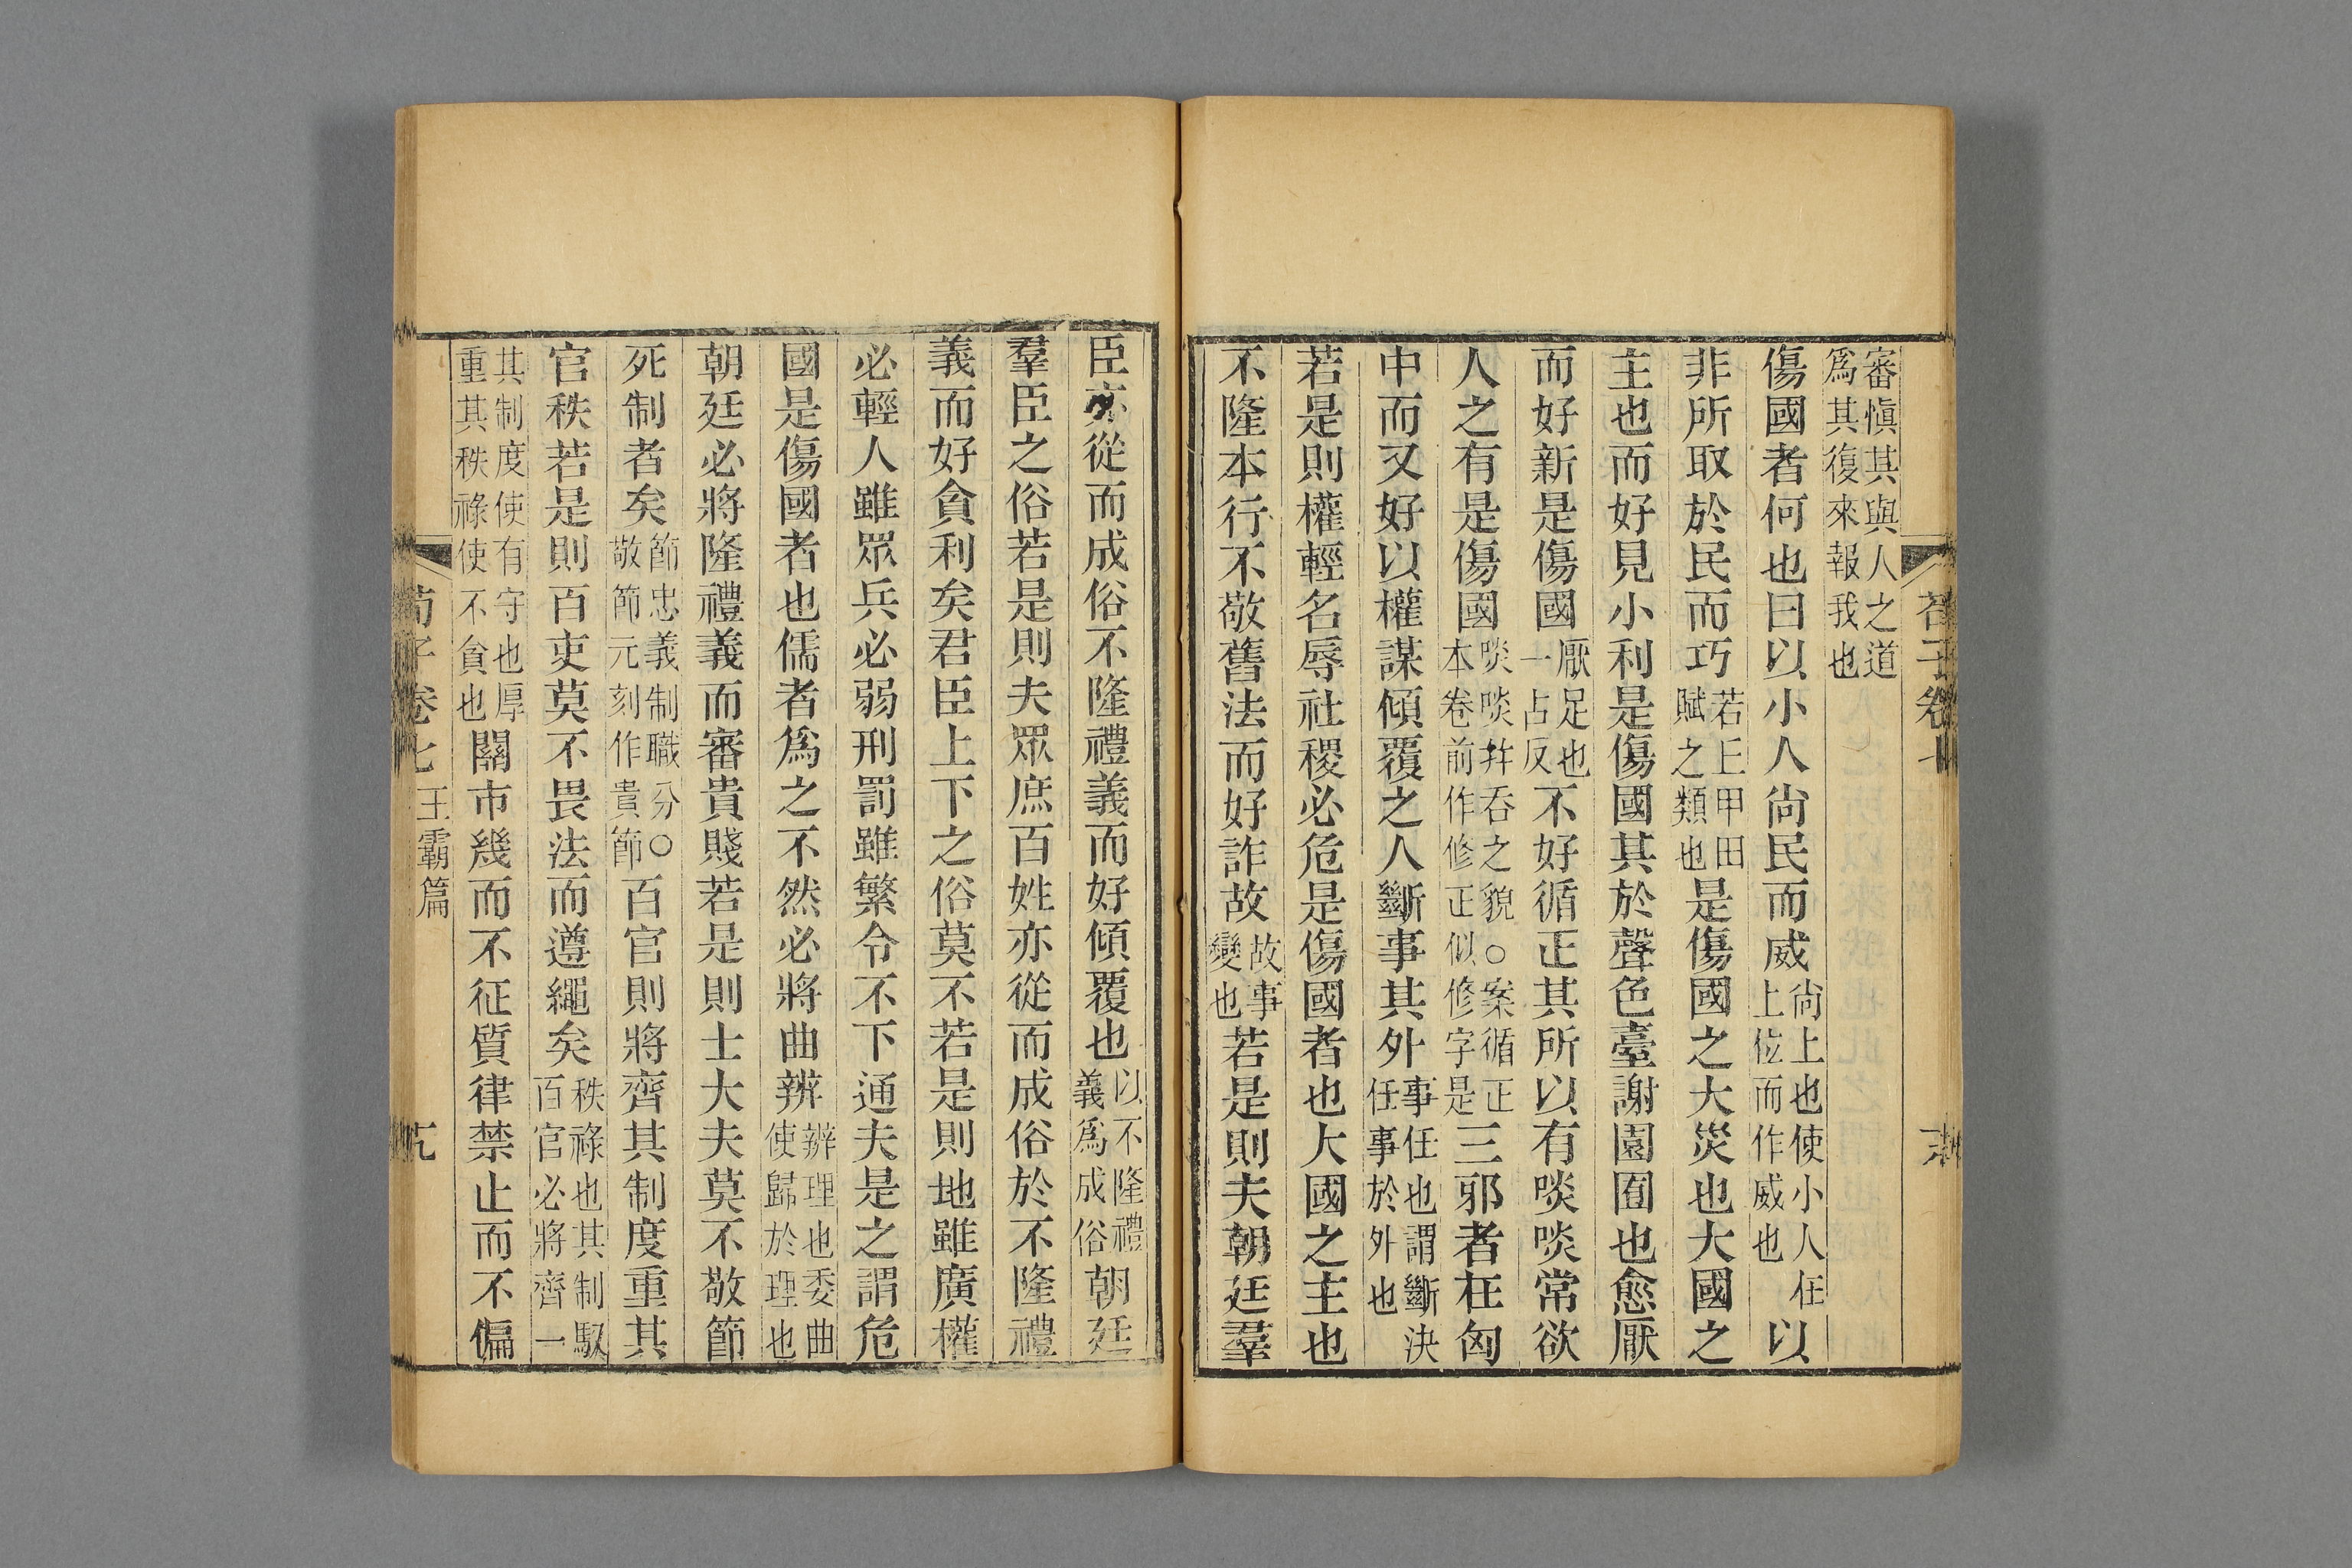 審愼其與人之道爲其復來報我也
傷國者何也曰以小人尙民而威尙上也使小人任上位而作威也以
非所取於民而巧若丘甲田賦之類也是傷國之大災也大國之
主也而好見小利是傷國其於聲色臺謝園囿也愈厭
而好新是傷國厭足也一占反不好循正其所以有啖啖常欲
人之有是傷國啖啖幷吞之貌○案循正本卷前作修正似修字是三邪者在匈
中而又好以權謀傾覆之人斷事其外事任也謂斷決任事於外也
若是則權輕名辱社稷必危是傷國者也大國之主也
不隆本行不敬舊法而好詐故故事變也若是則夫朝廷羣
臣亦從而成俗不隆禮義而好傾覆也以不隆禮義爲成俗朝廷
羣臣之俗若是則夫眾庶百姓亦從而成俗於不隆禮
義而好貪利矣君臣上下之俗莫不若是則地雖廣權
必輕人雖眾兵必弱刑罰雖繁令不下通夫是之謂危
國是傷國者也儒者爲之不然必將曲辨辨理也委曲使歸於理也
朝廷必將隆禮義而審貴賤若是則士大夫莫不敬節
死制者矣節忠義制職分○敬節元刻作貴節百官則將齊其制度重其
官秩若是則百吏莫不畏法而遵繩矣秩祿也其制馭百官必將齊一
其制度使有守也厚重其秩祿使不貪也關市幾而不征質律禁止而不偏
荀子卷七 王霸篇